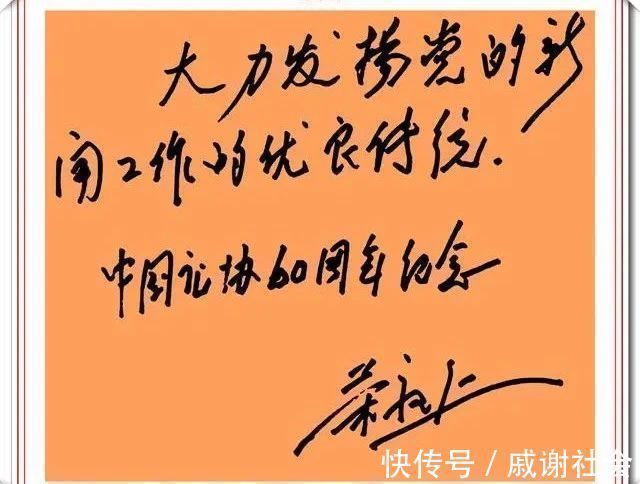 大力发扬党的新
闻工作的优良传统.
中国记协60周年纪念
荣毅仁
快传号／戚谢社会